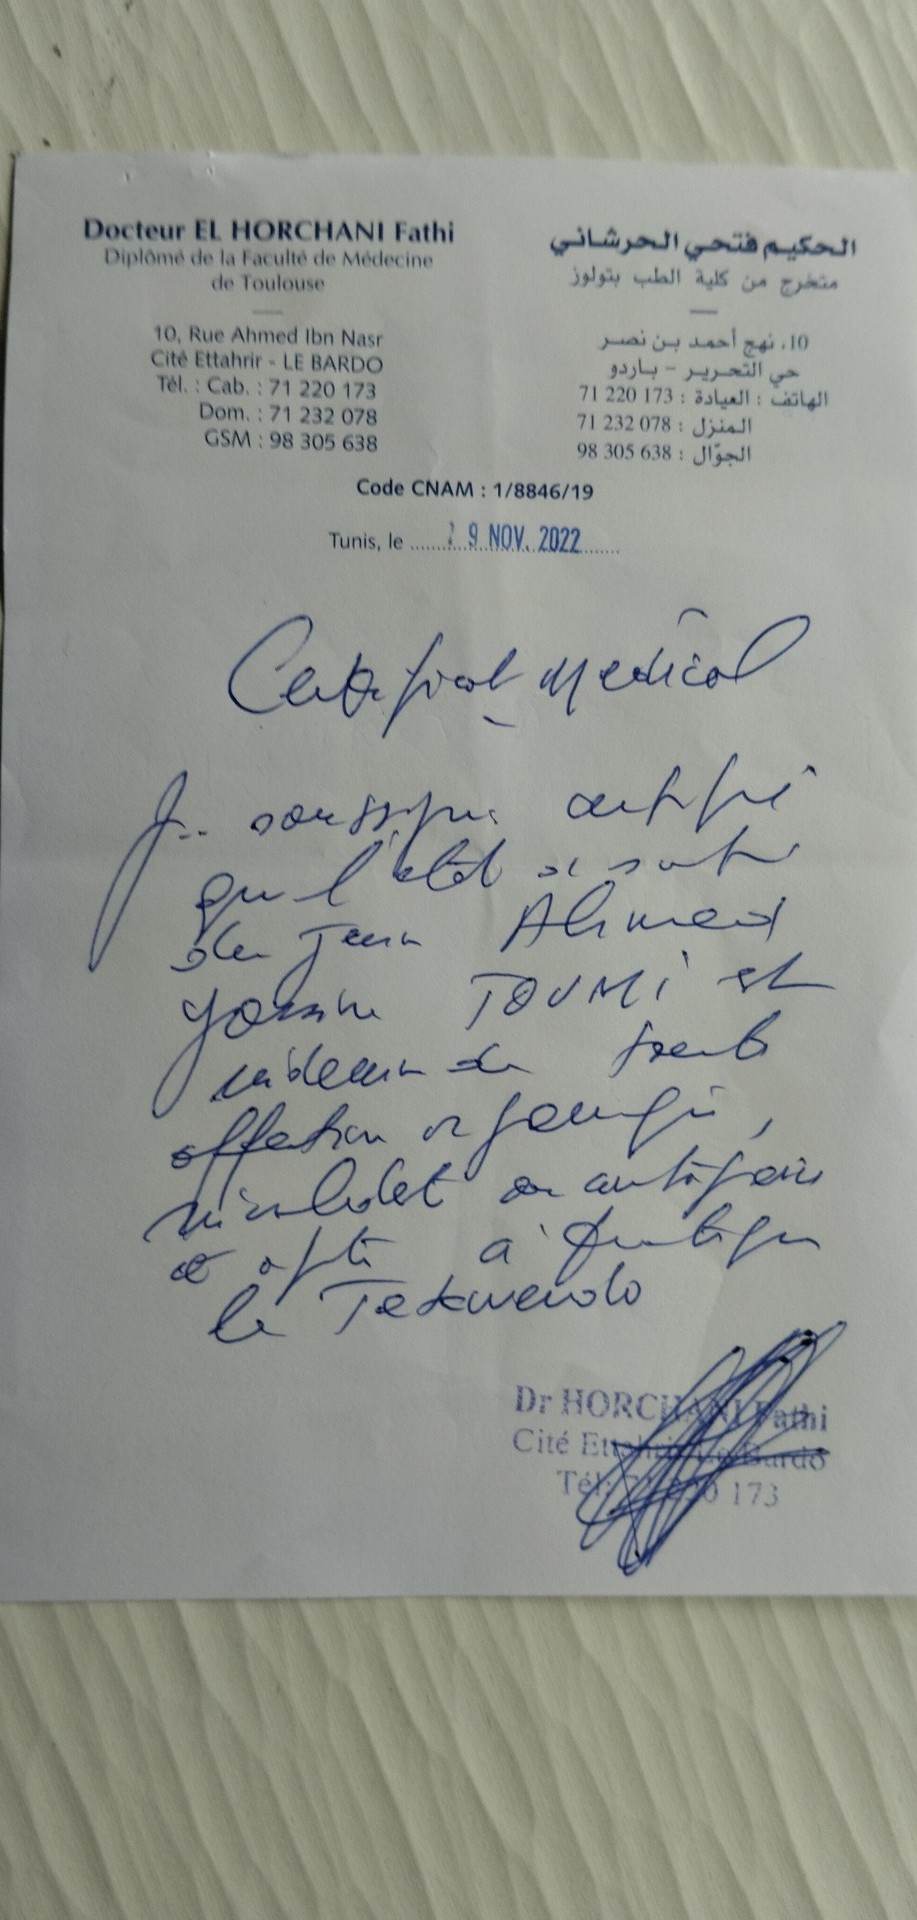 Docteur EL HORCHANI Fathi
Diplômé de la Faculté de Médecine
de Toulouse
10, Rue Ahmed Ibn Nasr
Cité Ettahrir - LE BARDO
Tél. : Cab. : 71 220 173
Dom. : 71 232 078
GSM : 98 305 638
الحكيم فتحي الحرشاني
متخرج من كلية الطب بتولوز
10، نهج أحمد بن نصر
حي التحرير - باردو
الهاتف : العيادة : 173 220 71
المنزل : 078 232 71
الجوّال : 638 305 98
Code CNAM : 1/8846/19
Tunis, le 9 NOV. 2022
Certificat Médical
Je soussigné certifié
que l'état de santé
du jeune Ahmed
Yassine TOUMI est
indemne de toute
affection
et apte à pratiquer
le Taekwendo
Dr HORCHANI Fathi
Cité Ettahrir Le Bardo
Tél: 71 220 173